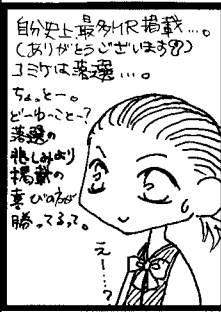 自分史上、最多イR掲載…。
(ありがとうございます♡)
コミケは落選…。
ちょっとー。
どーゆっことー?
落選の
悲しみより
掲載の
喜びのが
勝ってるって。
えー…?